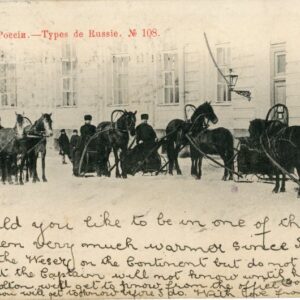 Россія.—Types de Russie. № 108.
ld you like to be in one of th
en very much warmer since
the Weser, on the Continent but do not
t the Captain will not know until
olton will get to know from the office
will get to know